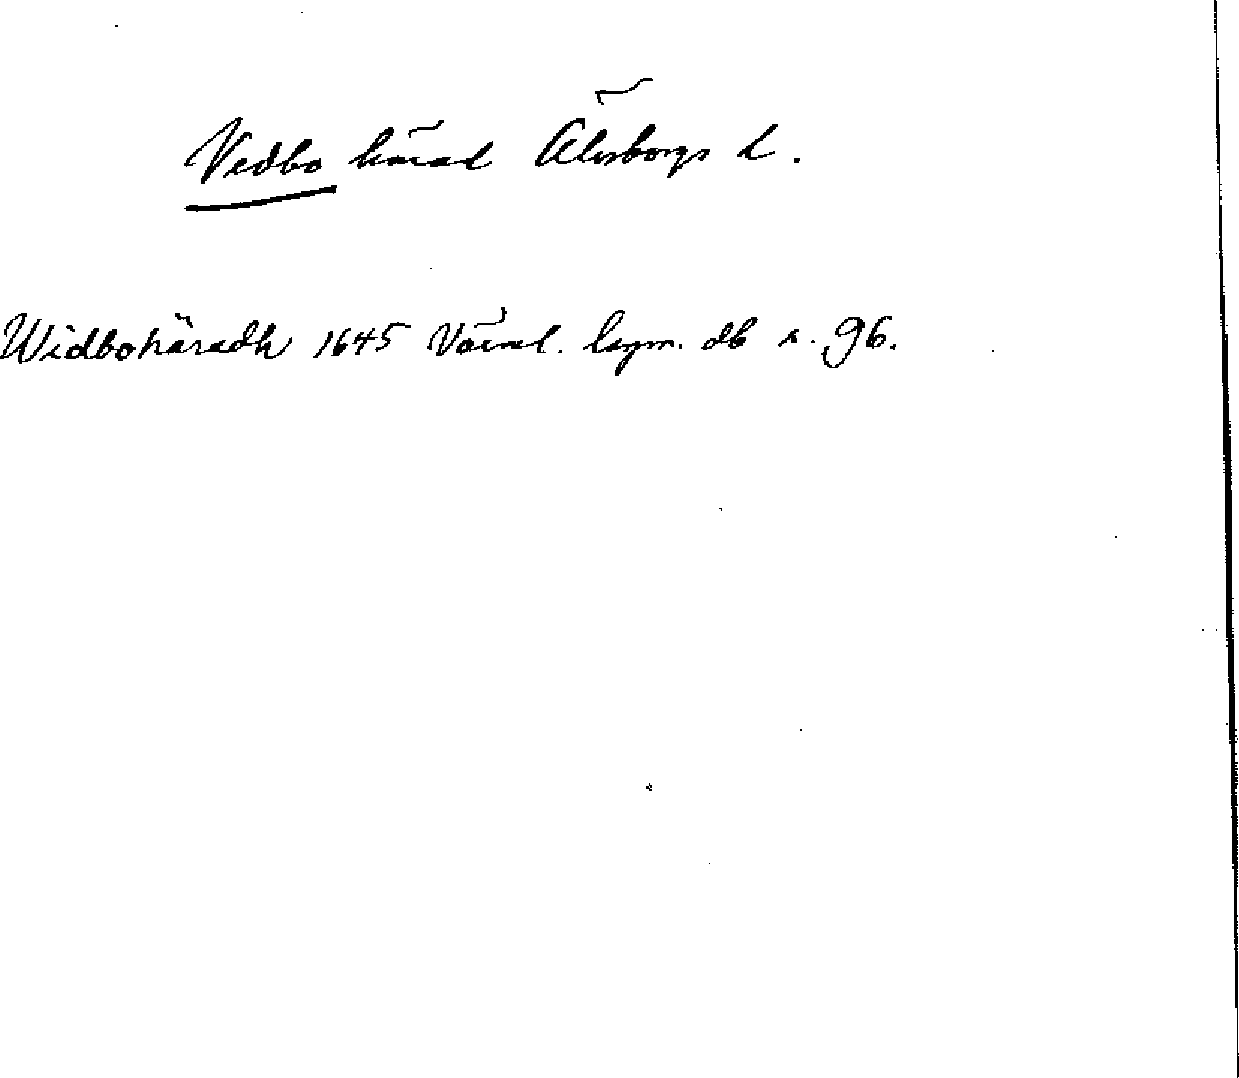 Vedbo härad Älvsborgs L.
Widbohäradh 1645 Värml. lagm. db s. 96.